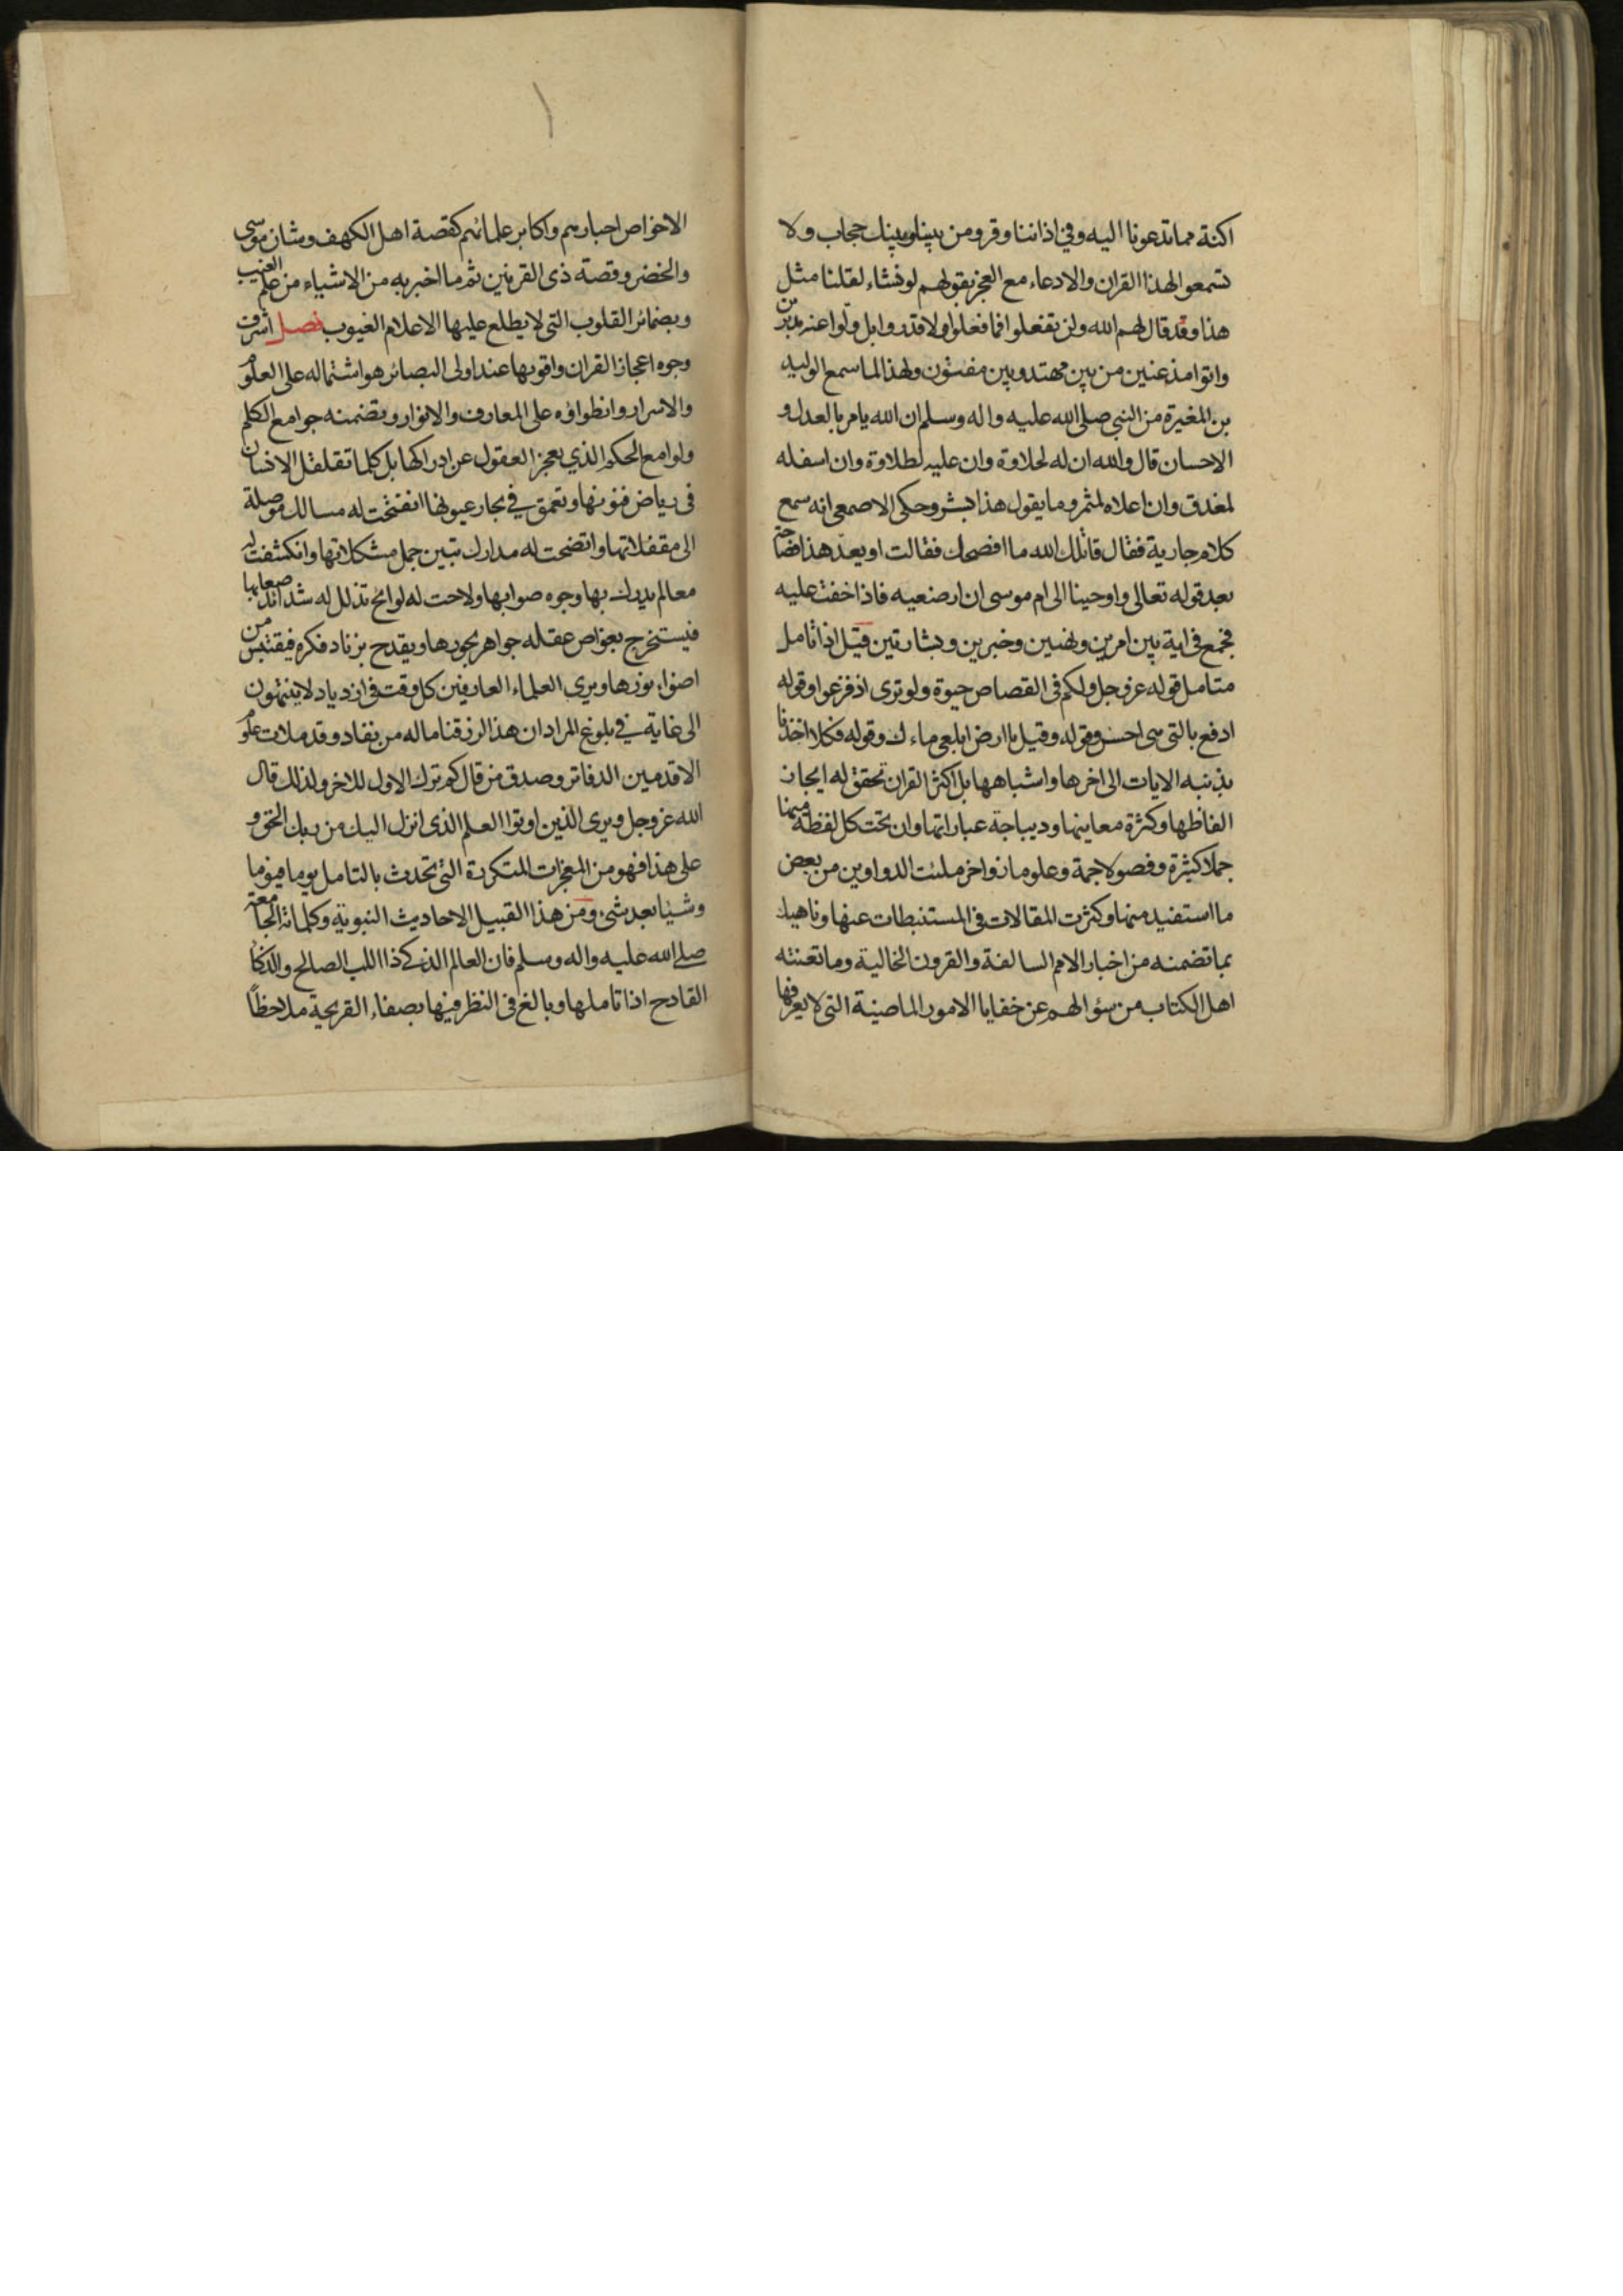 اكنة مما تدعونا اليه وفي اذاننا وقر ومن بيننا وبينك حجاب ولا
تسمعوا لهذا القران والادعاء مع العجز بقولهم لو نشاء لقلنا مثل
هذا وقد قال لهم الله ولن تفعلوا فما فعلوا ولا قدروا بل ولوا عنه مدبرين
واتوا مذعنين من بين مهتد وبين مفتون ولهذا لما سمع الوليد
بن المغيرة من النبي صلى الله عليه واله وسلم ان الله يامر بالعدل و
الاحسان قال والله ان له لحلاوة وان عليه لطلاوة وان اسفله
لمغدق وان اعلاه لمثمر وما يقول هذا بشر وحكى الاصمعي انه سمع
كلام جارية فقال قاتلك الله ما افصحك فقالت او يعد هذا فصاحة
بعد قوله تعالى واوحينا الى ام موسى ان ارضعيه فاذا خفت عليه
فجمع في اية بين امرين ونهيين وخبرين وبشارتين قيل اذا تامل
متامل قوله عز وجل ولكم في القصاص حيوة ولو ترى اذ فزعوا وقوله
ادفع بالتي هي احسن وقوله وقيل يا ارض ابلعي ماءك وقوله فكلا اخذنا
بذنبه الايات الى اخرها واشباهها بل اكثر القران تحقق له ايجاز
الفاظها وكثرة معانيها وديباجة عباراتها وان تحت كل لفظة منها
جملا كثيرة وفصولا جمة وعلوما زواخر ملئت الدواوين من بعض
ما استفيد منها وكثرت المقالات في المستنبطات عنها وناهيك
بما تضمنه من اخبار الامم السالفة والقرون الخالية وما تعنته
اهل الكتاب من سؤالهم عن خفايا الامور الماضية التي لا يعرفها
الا خواص احبارهم واكابر علمائهم كقصة اهل الكهف وشان موسى
والخضر وقصة ذي القرنين ثم ما اخبر به من الاشياء من علم الغيب
وبضمائر القلوب التي لا يطلع عليها الا علام الغيوب فصل اشرف
وجوه اعجاز القران واقوىها عند اولى البصائر هو اشتماله على العلوم
والاسرار وانطواؤه على المعارف والانوار وتضمنه جوامع الكلم
ولوامع الحكم الذي يعجز العقول عن ادراكها بل كلما تقلقل الانسان
في رياض فنونها وتعمق في بحار عيونها انفتحت له مسالك موصلة
الى مقفلاتها واتضحت له مدارك تبين جمل مشكلاتها وانكشفت له
معالم يدرك بها وجوه صوابها ولاحت له لوامح تذلل له شدائد صعابها
فيستخرج بغواص عقله جواهر بحورها ويقدح بزناد فكره فيقتبس من
اضواء نورها ويرى العلماء العارفين كل وقت في ازدياد لا ينتهون
الى غاية في بلوغ المراد ان هذا لرزقنا ماله من نفاد وقد ملات علوم
الاقدمين الدفاتر وصدق من قال كم ترك الاول للاخر ولذلك قال
الله عز وجل ويرى الذين اوتوا العلم الذي انزل اليك من ربك الحق و
على هذا فهو من المعجزات المتكررة التي تحدث بالتامل يوما فيوما
وشيئا بعد شئ ومن هذا القبيل الاحاديث النبوية وكلماته الجامعة
صلى الله عليه واله وسلم فان العالم الذكي ذا اللب الصالح والذكا
القادح اذا تاملها وبالغ في النظر فيها بصفاء القريحة ملاحظاً